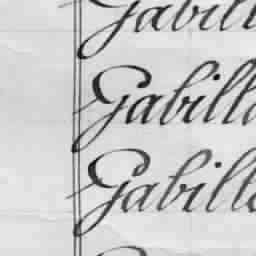 Gabill
Gabilla
Gabille